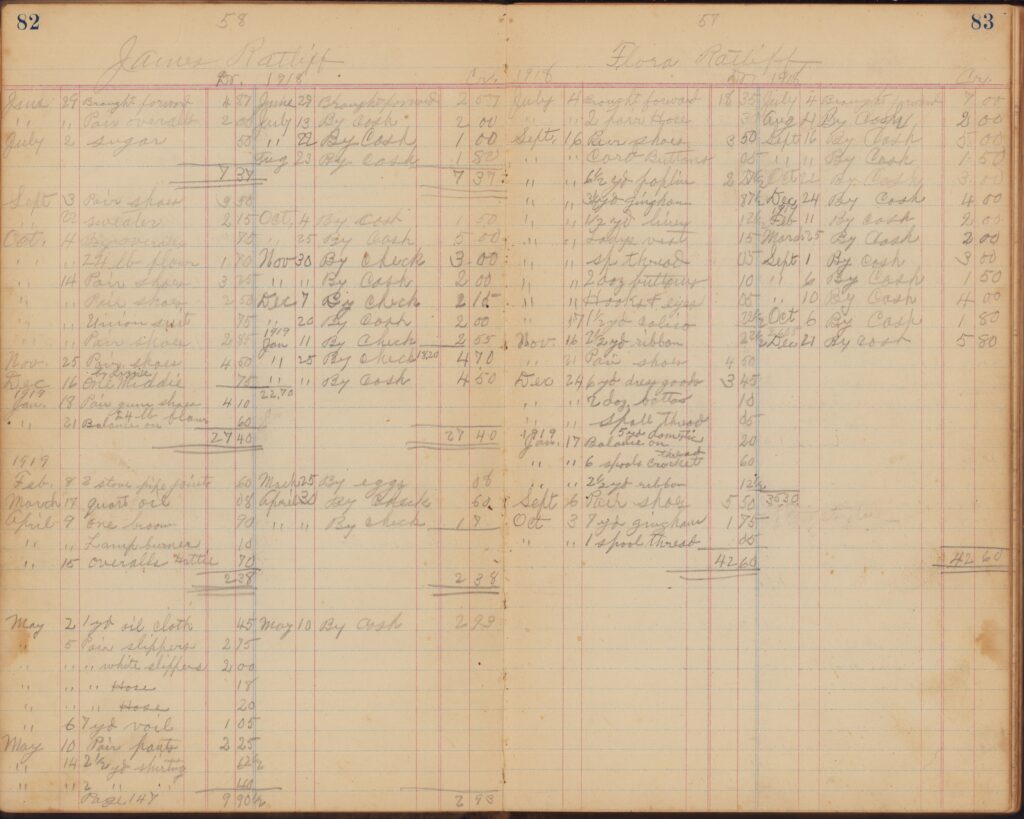 82
58
James Ratliff
Dr. 1918 Cr.
June 29 Brought forward 4 87 June 29 Brought forward 2 57
" " Pair overalls 2 00 July 13 By Cash 2 00
July 2 sugar 50 " 22 By Cash 1 00
Aug 23 By Cash 1 80
7 37 7 37
Sept 3 Pair shoes 3 50
" 22 sweater 2 15 Oct. 4 By Cash 1 50
Oct. 4 75 " 25 By Cash 5 00
" " 24 lb flour 1 70 Nov 30 By Check 3 00
" 14 Pair shoes 3 75 " " By Cash 2 00
" " Pair shoes 2 50 Dec 7 By Check 2 15
" " Union suit 75 " 20 By Cash 2 00
1919
" " Pair shoes 2 95 Jan 11 By Check 2 55
Nov. 25 Pair shoes 4 50 " 25 By Check 18.20 4 70
Dec 16 One Middie 75 " " By Cash 4 50
1919 22.70
Jan. 18 Pair gum shoes 4 10
24 lb flour
" 21 Balance on 60
27 40 27 40
1919
Feb. 8 3 stove pipe joints 60 March 25 By eggs 08
March 17 quart oil 08 April 30 By Check 60
April 9 One broom 90 " " By Check 1 7
" " Lamp burner 10
" 15 overalls Hattie 70
2 38 2 38
May 2 1 yd oil cloth 45 May 10 By Cash 2 93
" 5 Pair slippers 2 75
" " " white slippers 2 00
" " " Hose 18
" " " Hose 20
" 6 7 yd voil 1 05
May 10 Pair pants 2 25
" 14 2 1/2 yd shirting 62 1/2
" " 2 " " 40
Page 147 9 90 1/2 2 93
83
57
Flora Ratliff
1918 Dr. 1918 Cr.
July 4 Brought forward 18 35 July 4 Brought forward 7 00
" " 2 pair Hose Aug 21 By Cash 2 00
Sept. 16 Pair shoes 3 50 Sept 16 By Cash 5 00
" " Card Buttons 05 " " By Cash 1 50
" " 6 1/2 yd poplin 2 27 1/2 Oct 22 By Cash 3 00
" " 3 1/2 yd gingham 87 1/2 Dec 24 By Cash 4 00
1919
" " 1/2 yd linen 12 1/2 Feb 11 By Cash 2 00
" " Ladys vest 15 March 25 By Cash 2 00
" " sp. thread 05 Sept 1 By Cash 3 00
" " 2 doz buttons 10 " 6 By Cash 1 50
" " Hooks & eyes 05 " 10 By Cash 4 00
" 17 1 1/2 yd calico 22 1/2 Oct 6 By Cash 1 80
Nov. 16 2 1/2 yd ribbon Dec 21 By Cash 5 80
" 21 Pair shoes 4 50
Dec 24 6 yd dry goods 3 45
" " 2 doz button 10
" " Spool thread 05
1919 5 yd domestic
Jan. 17 Balance on 20
" " 6 spools crocket thread 60
" " 2 1/2 yd ribbon 12 1/2
Sept 6 Pair shoes 5 50 35.30
Oct 3 7 yd gingham 1 75
" " 1 spool thread 05
42 60 42 60